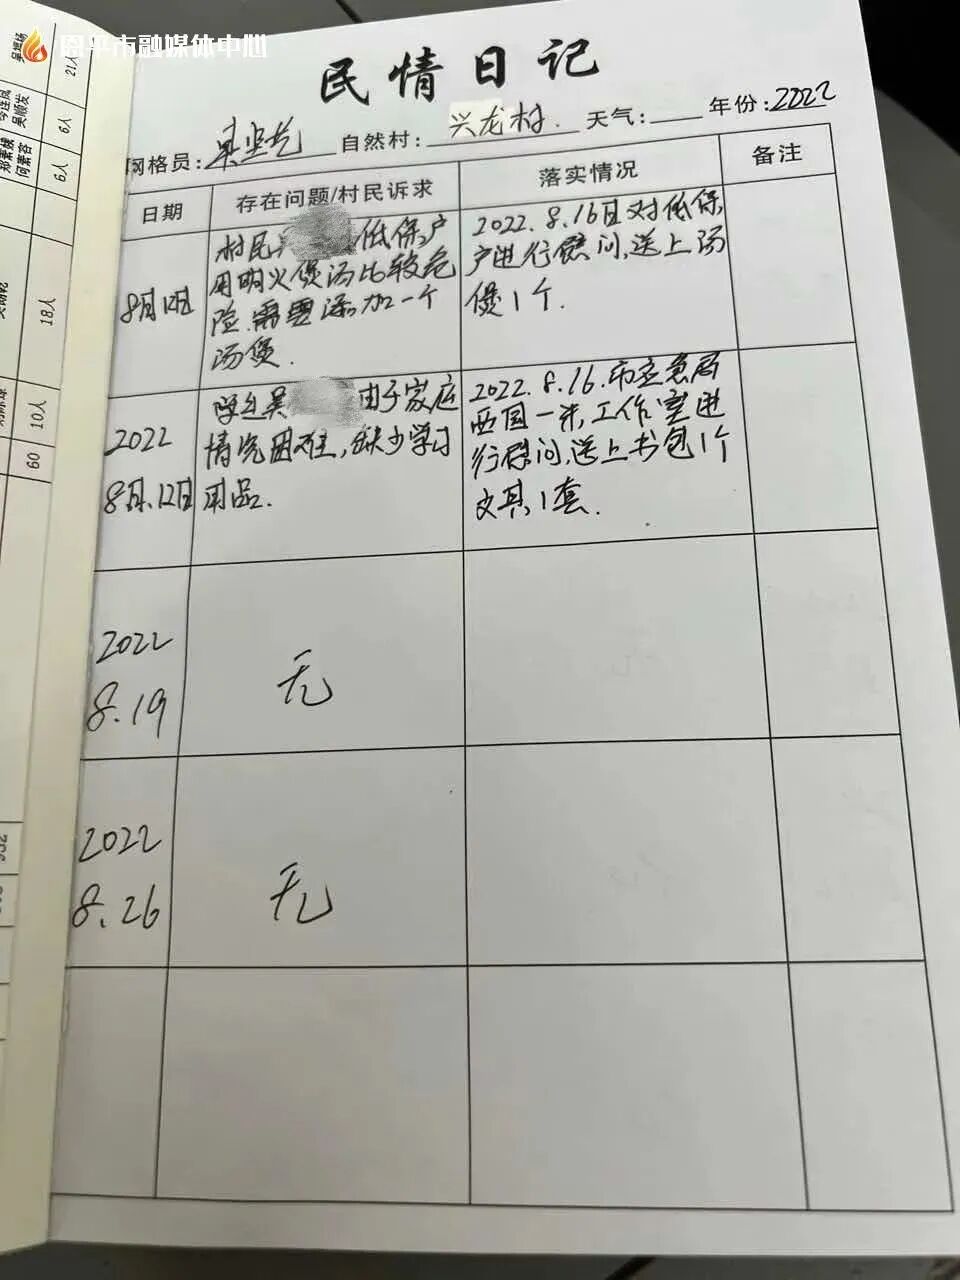 恩平市融媒体中心
民情日记
网格员:
自然村: 兴龙村.
天气:
年份: 2022
日期
存在问题/村民诉求
落实情况
备注
8月12日
村民
低保户
用明火煲汤比较危
险.需要添加一个
汤煲.
2022.8.16日对低保
户进行慰问,送上汤
煲1个.
2022
8月12日
学生吴
由于家庭
情况困难,缺少学习
用品.
2022.8.16.市应急局
一米,工作室进
行慰问,送上书包1个
文具1套.
2022
8.19
无
2022
8.26
无
吴顺发
何素容
21人
6人
6人
18人
10人
60